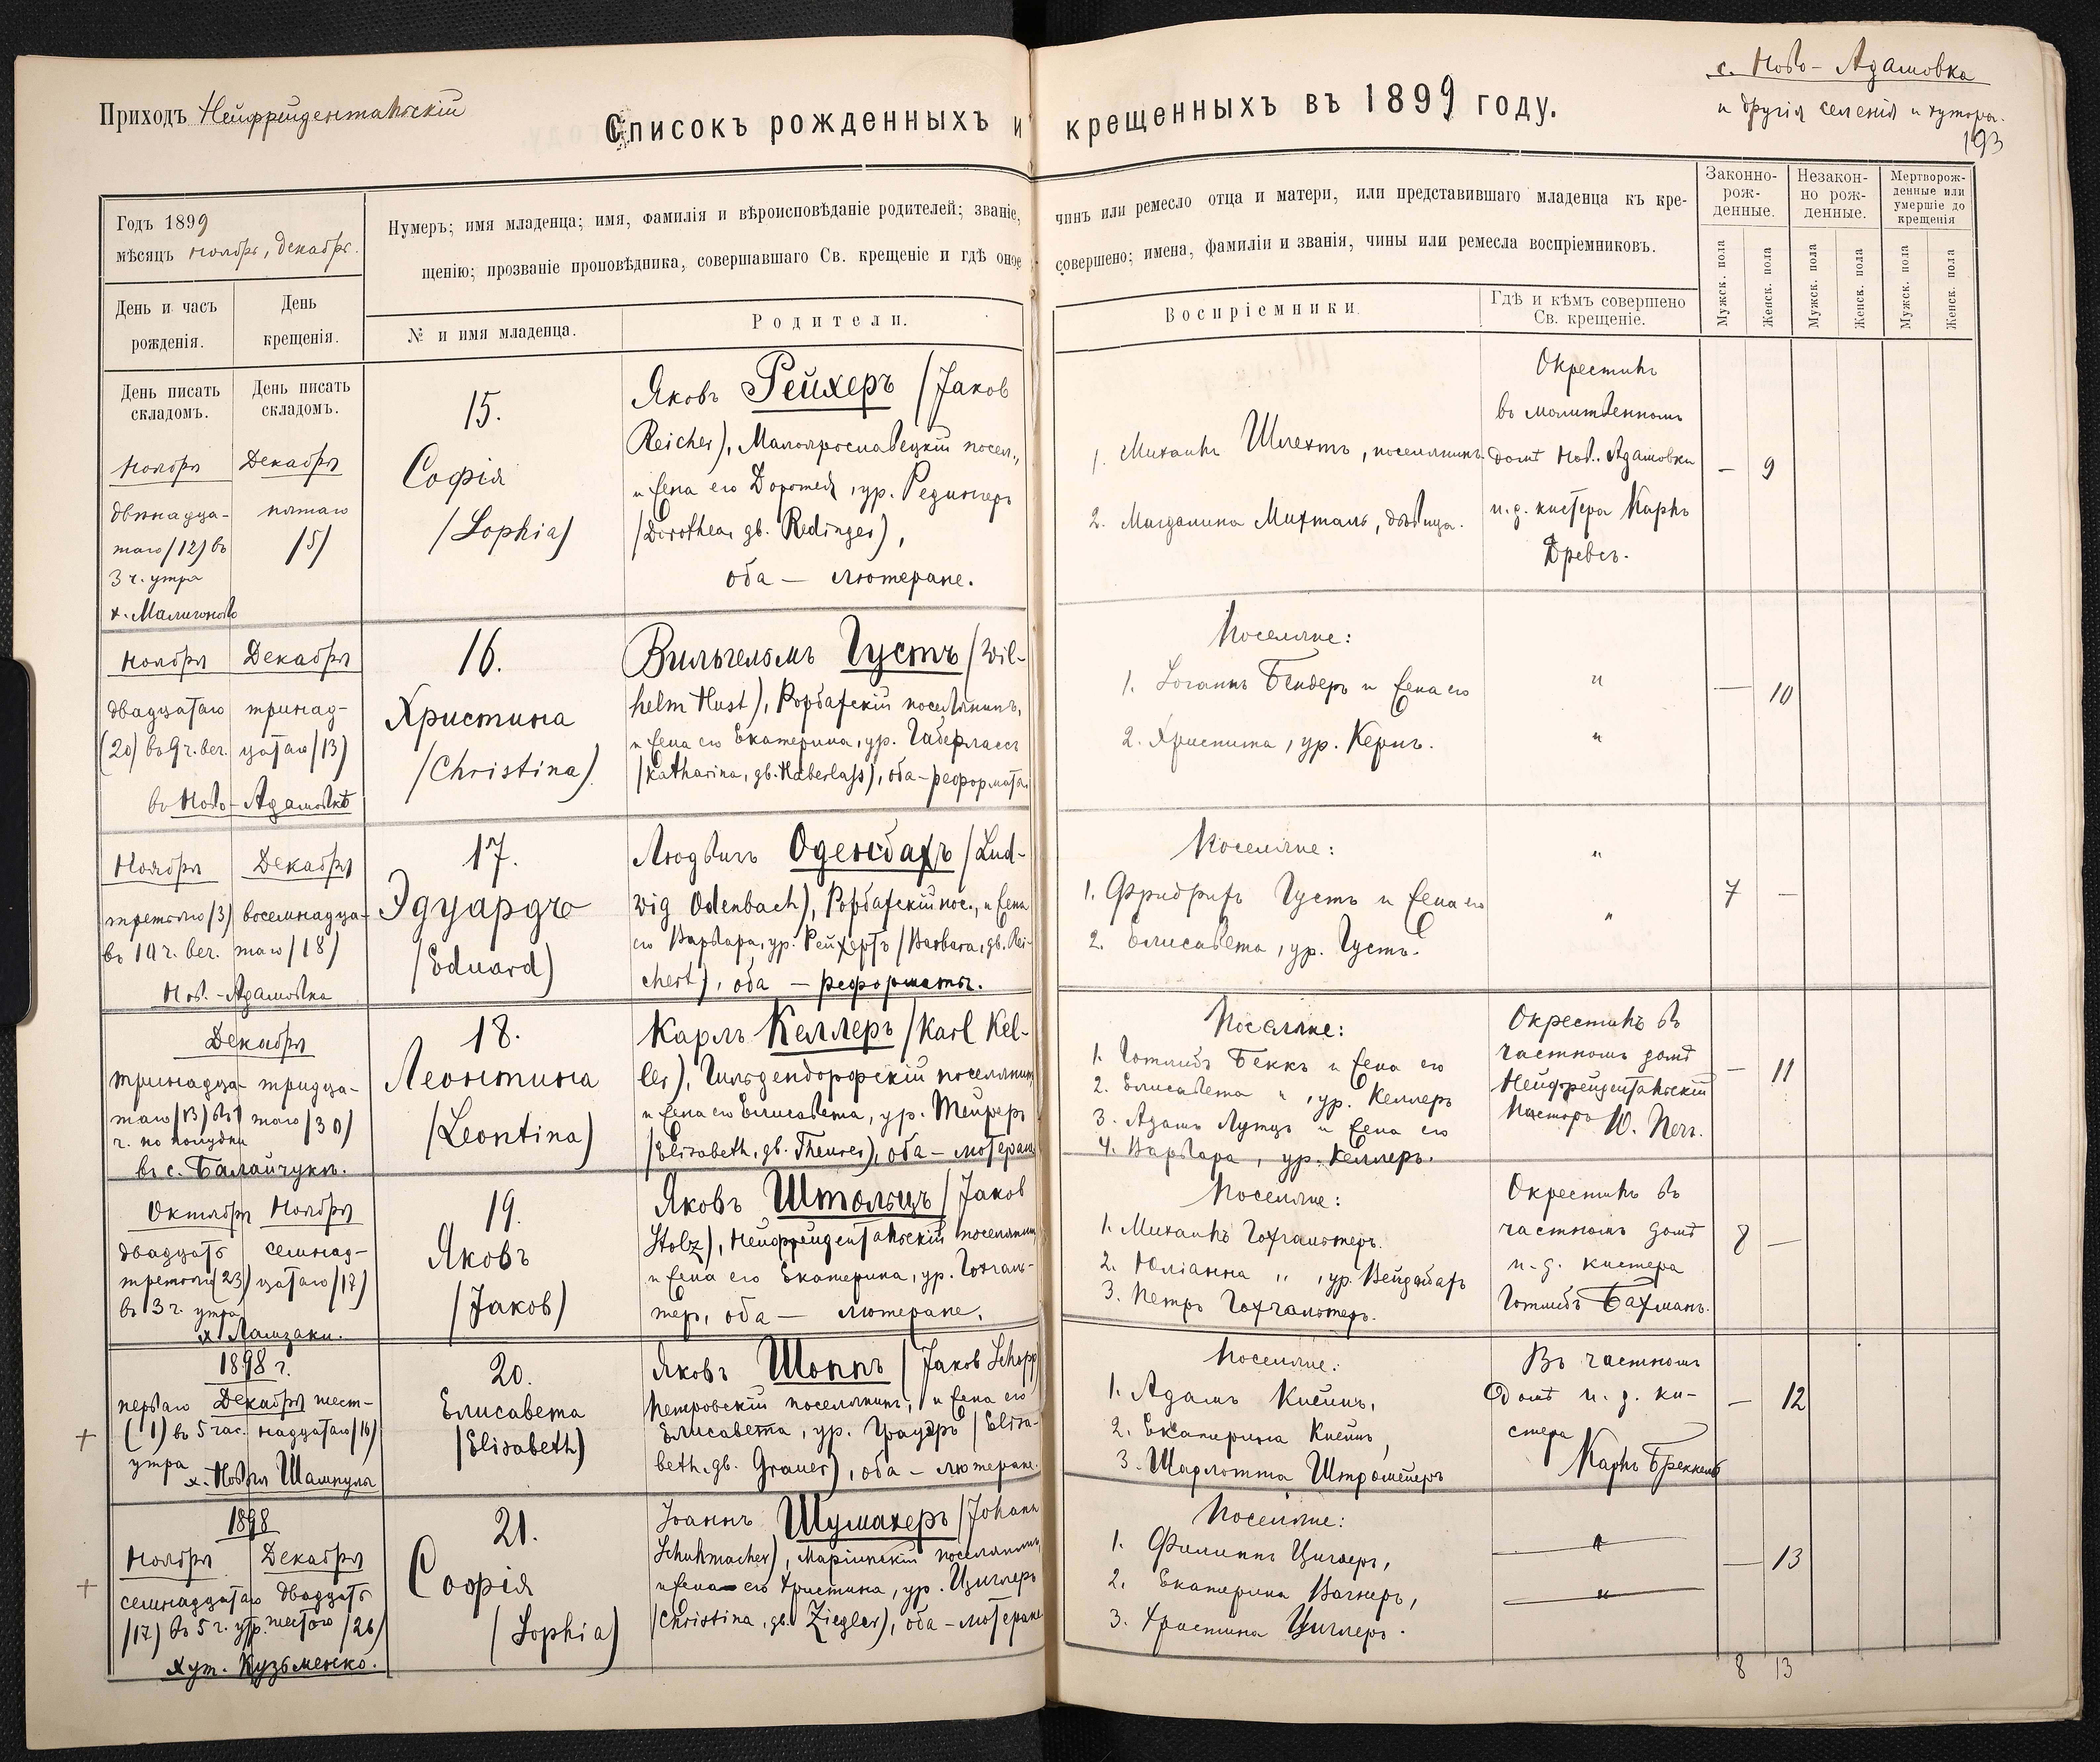 Приходъ Нейфрейдентальскій
Списокъ рожденныхъ и крещенныхъ въ 1899 году.
с. Ново-Адамовка
и другія селенія и хутора.
193
Годъ 1899
мѣсяцъ ноябрь, декабрь.
Нумеръ; имя младенца; имя, фамилія и вѣроисповѣданіе родителей; званіе,
чинъ или ремесло отца и матери, или представившаго младенца къ кре-
щенію; прозваніе проповѣдника, совершавшаго Св. крещеніе и гдѣ оное
совершено; имена, фамиліи и званія, чины или ремесла воспріемниковъ.
Законно-
рож-
денные.
Незакон-
но рож-
денные.
Мертворож-
денные или
умершіе до
крещенія
Мужск. пола
Женск. пола
Мужск. пола
Женск. пола
Мужск. пола
Женск. пола
День и часъ
рожденія.
День
крещенія.
№ и имя младенца.
Родители.
Воспріемники
Гдѣ и кѣмъ совершено
Св. крещеніе.
День писать
складомъ.
День писать
складомъ.
Ноября
двѣнадца-
таго (12) въ
3 ч. утра
х. Малигоново
Декабря
пятаго
(5)
15.
Софія
(Sophia)
Яковъ Рейхеръ (Jakob
Reicher), Малоярославецкій посел.,
и жена его Доротея, ур. Редингеръ
(Dorothea, gb. Redinger),
оба — лютеране.
1. Михаилъ Шлехтъ, поселянинъ.
2. Магдалина Михталь, дѣвица.
Окрестилъ
въ молитвенномъ
домѣ Нов. Адамовки
и. д. кистера Карлъ
Древсъ.
— 9
Ноября
двадцатаго
(20) въ 9 ч. веч.
Декабря
тринад-
цатаго (13)
въ Ново-Адамовкѣ
16.
Христина
(Christina)
Вильгельмъ Густъ (Wil-
helm Hust), Рорбахскій поселянинъ,
и жена его Екатерина, ур. Габерласъ
(Katharina, gb. Haberlaß), оба — реформаты
Поселяне:
1. Іоганнъ Бендеръ и жена его
2. Христина, ур. Кернъ.
"
"
— 10
Ноября
третьяго (3)
въ 10 ч. веч.
Декабря
восемнадца-
таго (18)
Нов.-Адамовка
17.
Эдуардъ
(Eduard)
Людвигъ Оденбахъ (Lud-
wig Odenbach), Рорбахскій пос., и жена
его Варвара, ур. Рейхертъ (Barbara, gb. Rei-
chert), оба — реформаты.
Поселяне:
1. Фридрихъ Густъ и жена его
2. Елисавета, ур. Густъ.
"
"
7 —
Декабря
тринадца-
таго (13) въ 1
ч. по полудни
тридца-
таго (30)
въ с. Балайчукъ.
18.
Леонтина
(Leontina)
Карлъ Келлеръ (Karl Kel-
ler), Гильдендорфскій поселянинъ
и жена его Елисавета, ур. Тейреръ
(Elisabeth, gb. Theurer), оба — лютеране
Поселяне:
1. Готлибъ Беккъ и жена его
2. Елисавета " , ур. Келлеръ
3. Адамъ Лутцъ и жена его
4. Варвара, ур. Келлеръ.
Окрестилъ въ
частномъ домѣ
Нейфрейдентальскій
Пасторъ Ю. Печ.
— 11
Октября
двадцать
третьяго (23)
въ 3 ч. утра
Ноября
семнад-
цатаго (17)
х Ламзаки.
19.
Яковъ
(Jakob)
Яковъ Штольцъ (Jakob
Stolz), Нейфрейдентальскій поселянинъ
и жена его Екатерина, ур. Гохгаль-
теръ, оба — лютеране.
Поселяне:
1. Михаилъ Гохгалтеръ.
2. Юліанна " , ур. Вейденбахъ
3. Петръ Гохгалтеръ.
Окрестилъ въ
частномъ домѣ
и. д. кистера
Готлибъ Бахманъ.
8 —
1898 г.
Декабря
перваго
(1) въ 5 час.
утра
шест-
надцатаго (16)
х. Новыя Шампулы
+
20.
Елисавета
(Elisabeth)
Яковъ Шоппъ (Jakob Schopp)
Петровскій поселянинъ, и жена его
Елисавета, ур. Грауэръ (Elisa-
beth, gb. Grauer), оба — лютеране.
Поселяне:
1. Адамъ Клейнъ,
2. Екатерина Клейнъ,
3. Шарлотта Штромейеръ
Въ частномъ
домѣ и. д. ки-
стера
Карлъ Бреккель
— 12
1898
Ноября
семнадцатаго
(17) въ 5 ч. утр.
Декабря
двадцать
шестого (26)
хут. Кузьменко.
+
21.
Софія
(Sophia)
Іоаннъ Шумахеръ (Johann
Schuhmacher), Маріинскій поселянинъ,
и жена его Христина, ур. Циглеръ
(Christina, gb. Ziegler), оба — лютеране
Поселяне:
1. Филиппъ Циглеръ,
2. Екатерина Вагнеръ,
3. Христина Циглеръ.
"
"
— 13
8 13